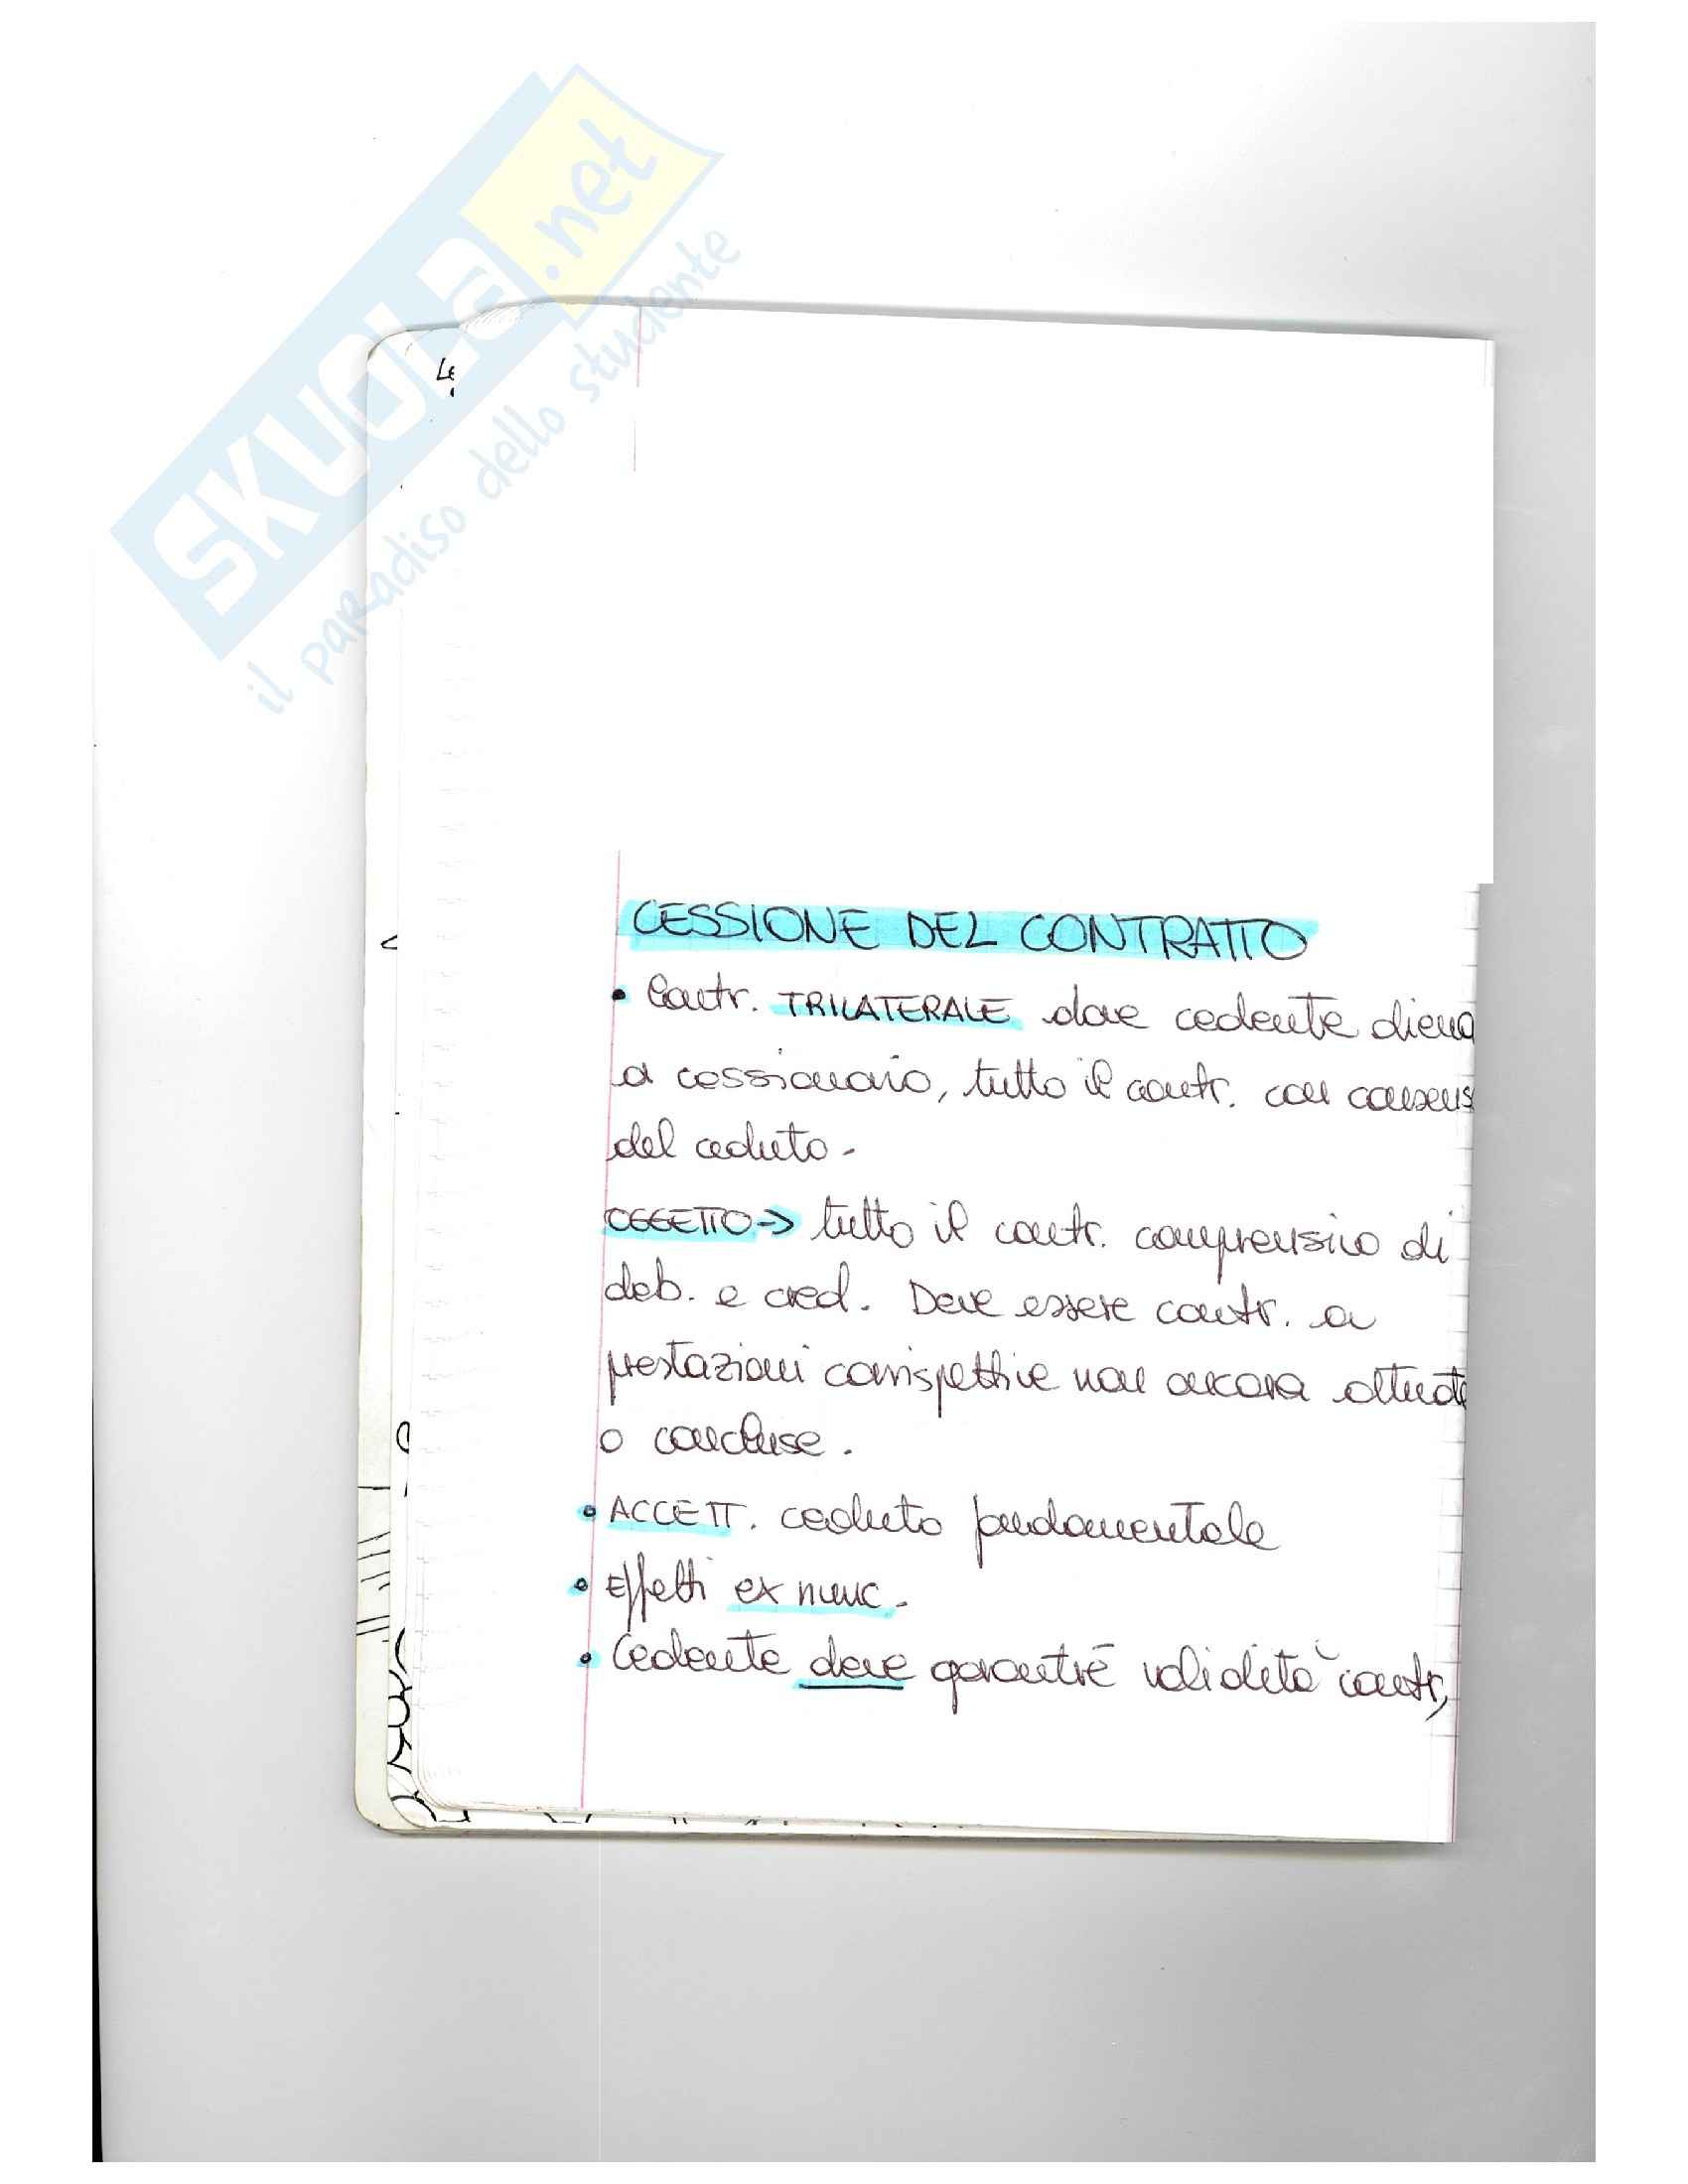 SKUOLA.net
il paradiso dello studente
Le
CESSIONE DEL CONTRATTO
• Contr. TRILATERALE dove cedente aliena
a cessionario, tutto il contr. con consens
del ceduto.
OGGETTO → tutto il contr. comprensivo di
deb. e cred. Deve essere contr. a
prestazioni corrispettive non ancora attuate
o concluse.
• ACCETT. ceduto fondamentale
• Effetti ex nunc.
• Cedente deve garantire validità contr,